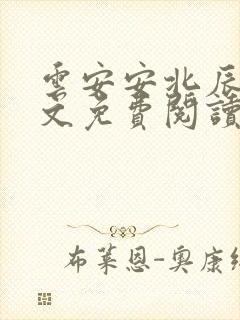 雲安安北辰
文免費閱讀
布萊恩-奧康納